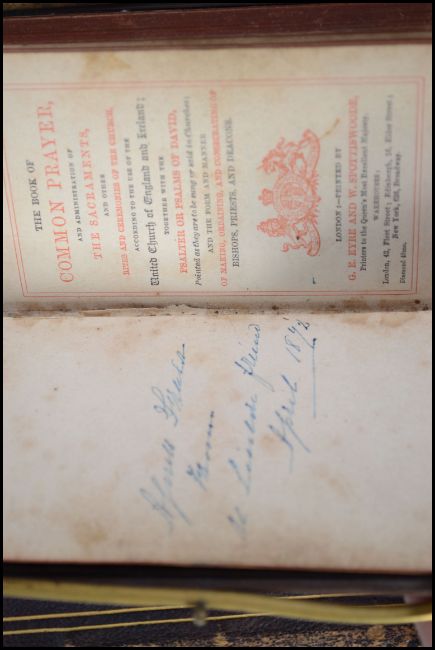 THE BOOK OF
COMMON PRAYER,
AND ADMINISTRATION OF
THE SACRAMENTS,
AND OTHER
RITES AND CEREMONIES OF THE CHURCH,
ACCORDING TO THE USE OF THE
United Church of England and Ireland;
TOGETHER WITH THE
PSALTER OR PSALMS OF DAVID,
Pointed as they are to be sung or said in Churches;
AND THE FORM AND MANNER
OF MAKING, ORDAINING, AND CONSECRATING OF
BISHOPS, PRIESTS, AND DEACONS.
LONDON:—PRINTED BY
G. E. EYRE AND W. SPOTTISWOODE,
Printers to the Queen's Most Excellent Majesty.
WAREHOUSES:
London, 43, Fleet Street; Edinburgh, Elder Street;
New York, Broadway.
Diamond 48mo.
Alfred
From
friend
April